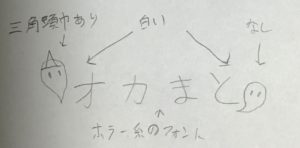 三角頭巾あり
白い
なし
オカまと
ホラー系のフォント